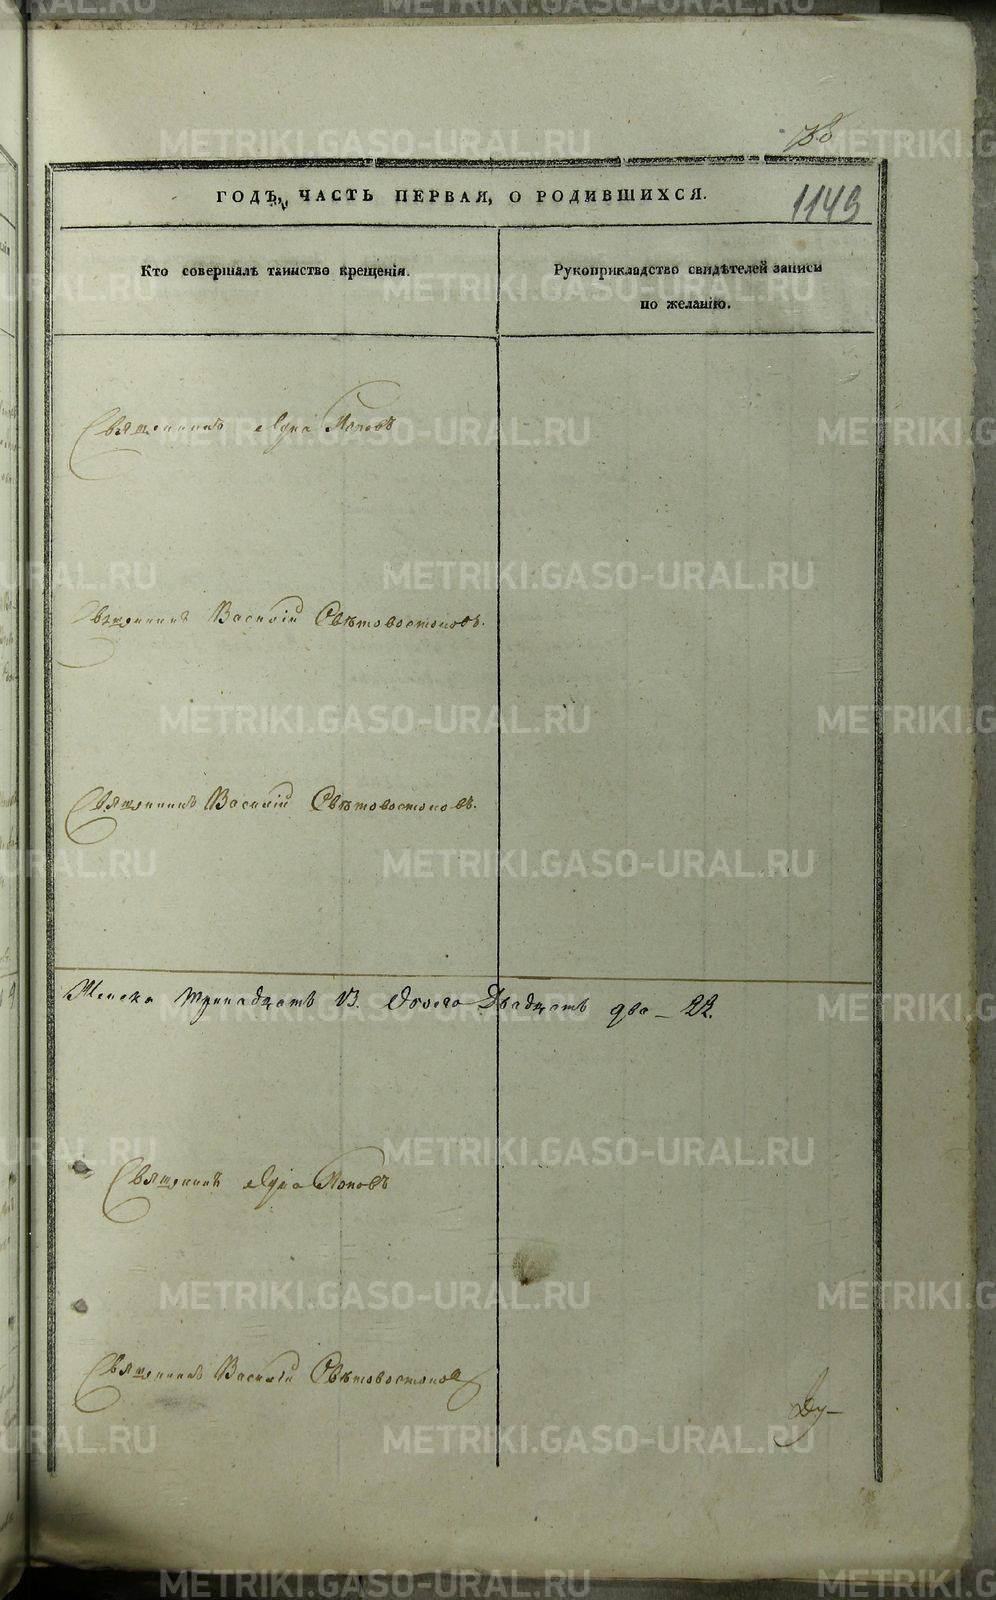 1149
ГОДЪ, ЧАСТЬ ПЕРВАЯ, О РОДИВШИХСЯ.
Кто совершалъ таинство крещенія.
Рукоприкладство свидѣтелей записи
по желанію.
Священникъ Лука Поповъ
Священникъ Василій Свѣтовостоковъ.
Священникъ Василій Свѣтовостоковъ.
Женска тринадцать 13. Обоего Двадцать два – 22.
Священникъ Лука Поповъ
Священникъ Василій Свѣтовостоковъ
METRIKI.GASO-URAL.RU